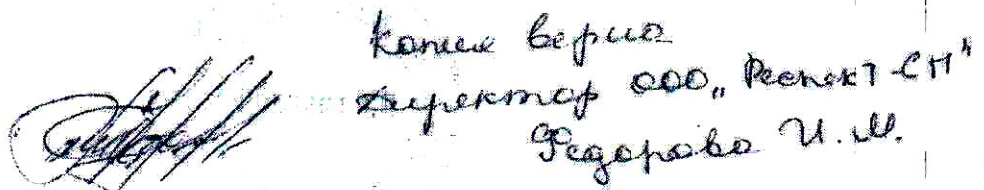 Копия верна
Директор ООО „Респект-СН"
Федорова И.М.